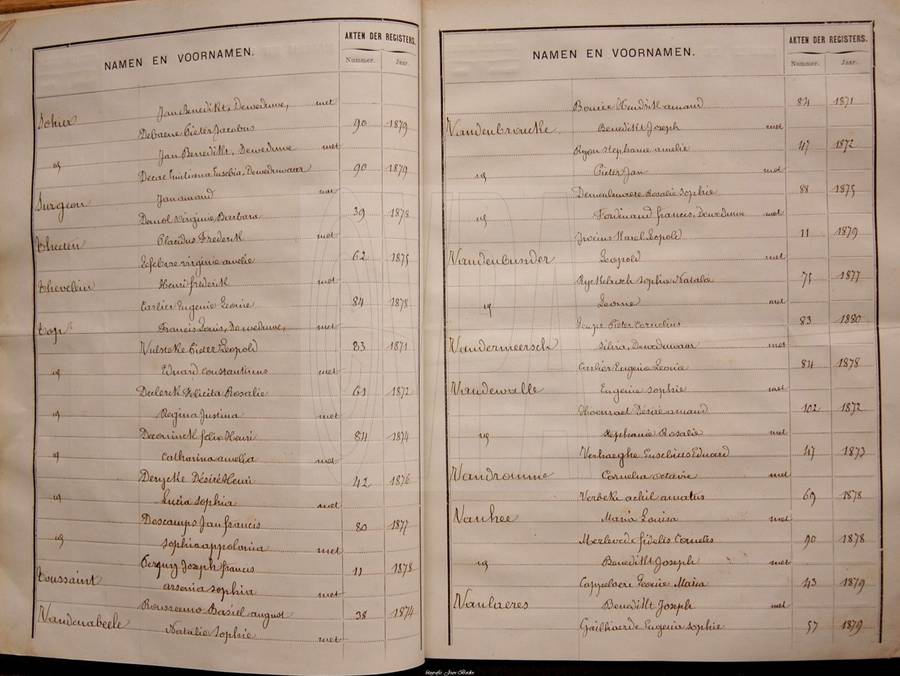 NAMEN EN VOORNAMEN. AKTEN DER REGISTERS.
Nummer. Jaar.
Jan Benedikt, Deweduwe, met
Debaene Pieter Jacobus 90 1879
id Jan Benedikt, Deweduwe met
Decae Emiliana Eusebia, Deweduwaar 90 1879
Surgeon Jan amand met
Danol Virginie Barbara 39 1878
Placidus Frederik met
Lefebvre virginie amelie 62 1875
Thevelin Henri frederik met
Carlier Eugenie Leonie 84 1878
Top Francis Louis, Deweduwe, met
Pieter Leopold 83 1871
id Eduard constantinus met
Declerck Felicita Rosalie 61 1872
id Regina Justina met
Deconinck felix Henri 84 1874
id Catharina amelia met
Derycke Désiré Henri 42 1876
id Lucia sophia met
Descamps Jan francis 80 1877
id sophia appolonia met
Joseph francis 11 1878
Toussaint arsenia sophia met
Rousseauw Basiel august 38 1874
Vandenabeele Natalie Sophie met
NAMEN EN VOORNAMEN. AKTEN DER REGISTERS.
Nummer. Jaar.
Hendrik amand 84 1871
Vandenbroucke Benedikt Joseph met
Stephanie amelie 47 1872
id Pieter Jan met
Rosalie Sophie 88 1875
id Ferdinand francis, Deweduwe met
Karel Leopold 11 1879
Vandenbunder Leopold met
Sophie Natalie 75 1877
id Leonie met
Pieter Cornelius 83 1880
Vandermeersch Silvia, Deweduwaar met
Carlier Eugene Leonie 84 1878
Vandewalle Eugenie Sophie met
Désiré amand 102 1872
id Stephanie Rosalie met
Verhaeghe Eusebius Eduard 47 1873
Vandromme Cornelia octavie met
Verbeke achil amatus 69 1878
Vanhee Maria Louisa met
fidelis Cornelis 90 1878
id Benedikt Joseph met
Cappelaere Leonie Maria 43 1879
Vanlaeres Benedikt Joseph met
Gailliaerde Eugenia Sophie 57 1879